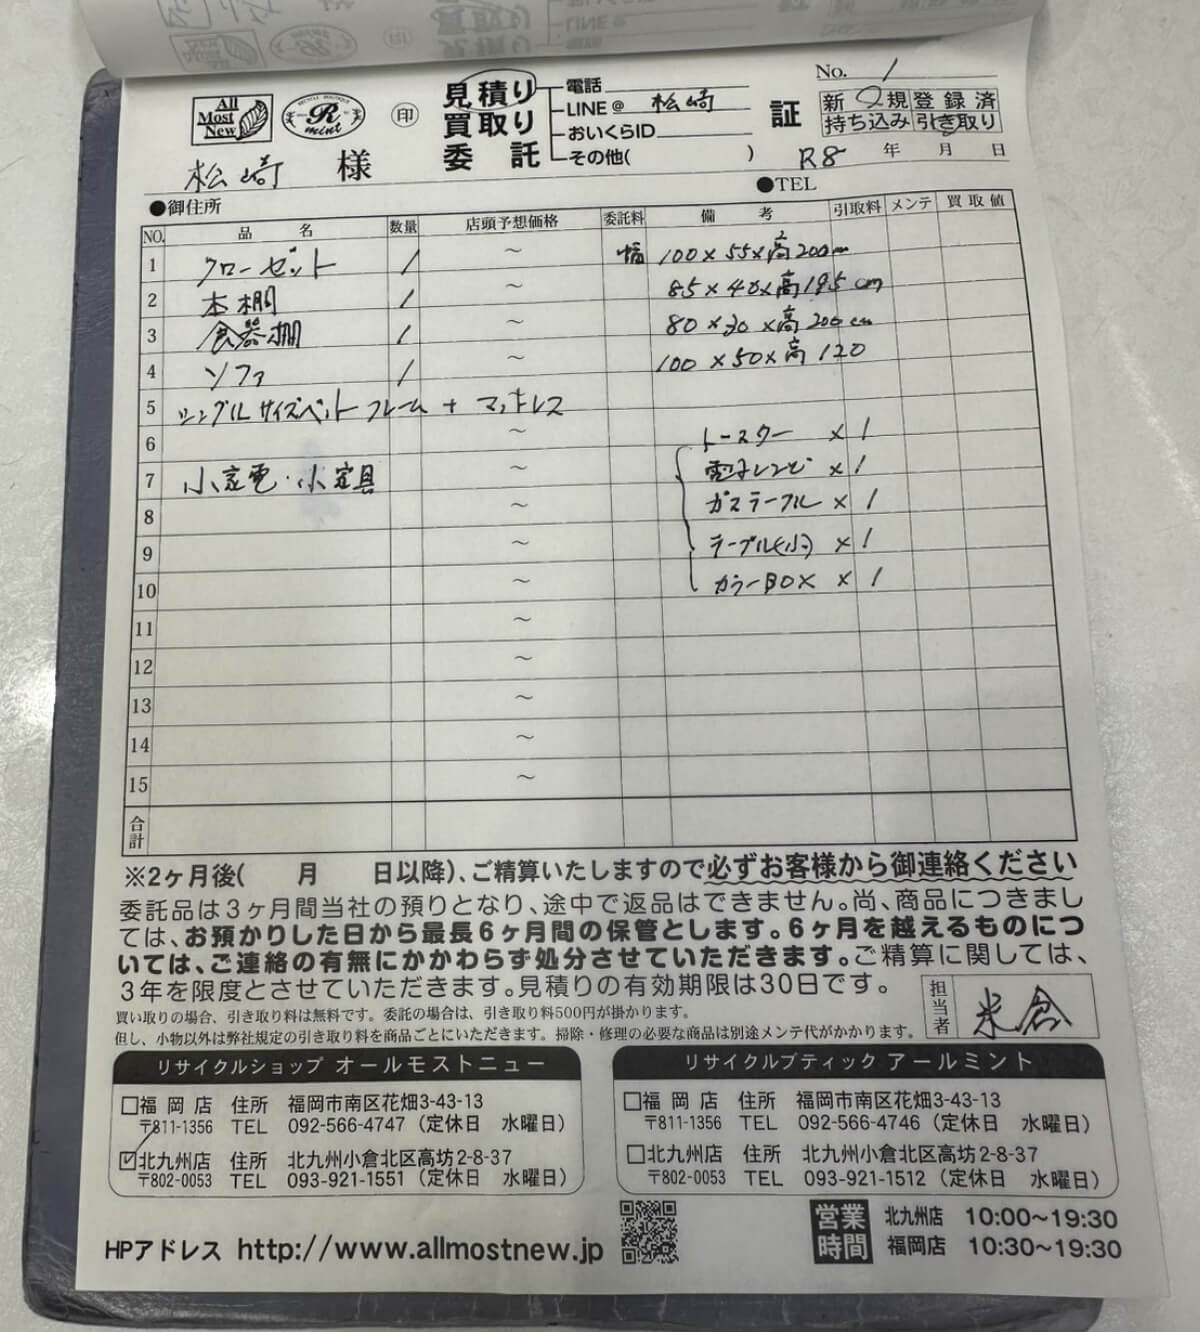 All
Most
New
R
mint
印
見積り
買取り
委託
電話
LINE@ 松崎
おいくらID
その他( )
証
No. 1
新規 登録済
持ち込み 引き取り
松崎 様
R8 年 月 日
●御住所
●TEL
NO. 品名 数量 店頭予想価格 委託料 備考 引取料 メンテ 買取値
1 クローゼット 1 〜 幅 100×55×高200cm
2 本棚 1 〜 85×40×高185cm
3 食器棚 1 〜 80×30×高200cm
4 ソファ 1 〜 100×50×高120
5 シングルサイズベットフレーム + マットレス
6 〜 トースター ×1
7 小家電・小家具 〜 電子レンジ ×1
8 〜 ガステーブル ×1
9 〜 テーブル(小) ×1
10 〜 カラーBOX ×1
11 〜
12 〜
13 〜
14 〜
15 〜
合計
※2ヶ月後( 月 日以降)、ご精算いたしますので必ずお客様から御連絡ください
委託品は3ヶ月間当社の預りとなり、途中で返品はできません。尚、商品につきまし
ては、お預かりした日から最長6ヶ月間の保管とします。6ヶ月を越えるものにつ
いては、ご連絡の有無にかかわらず処分させていただきます。ご精算に関しては、
3年を限度とさせていただきます。見積りの有効期限は30日です。
買い取りの場合、引き取り料は無料です。委託の場合は、引き取り料500円が掛かります。
但し、小物以外は弊社規定の引き取り料を商品ごとにいただきます。掃除・修理の必要な商品は別途メンテ代がかかります。
担当者 米倉
リサイクルショップ オールモストニュー
□福岡店 住所 福岡市南区花畑3-43-13
〒811-1356 TEL 092-566-4747（定休日 水曜日）
☑北九州店 住所 北九州小倉北区高坊2-8-37
〒802-0053 TEL 093-921-1551（定休日 水曜日）
リサイクルブティック アールミント
□福岡店 住所 福岡市南区花畑3-43-13
〒811-1356 TEL 092-566-4746（定休日 水曜日）
□北九州店 住所 北九州小倉北区高坊2-8-37
〒802-0053 TEL 093-921-1512（定休日 水曜日）
HPアドレス http://www.allmostnew.jp
営業時間
北九州店 10:00〜19:30
福岡店 10:30〜19:30